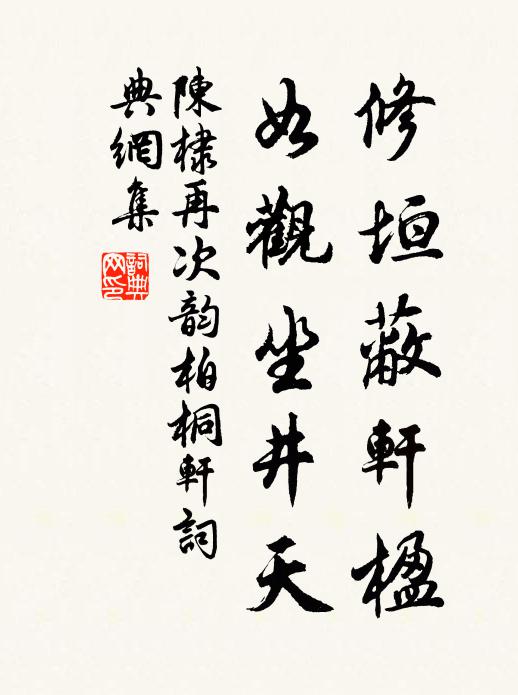 修垣蔽軒楹
如觀坐井天
陳棣再次韵柏桐軒詞
典網集
詞典
网印